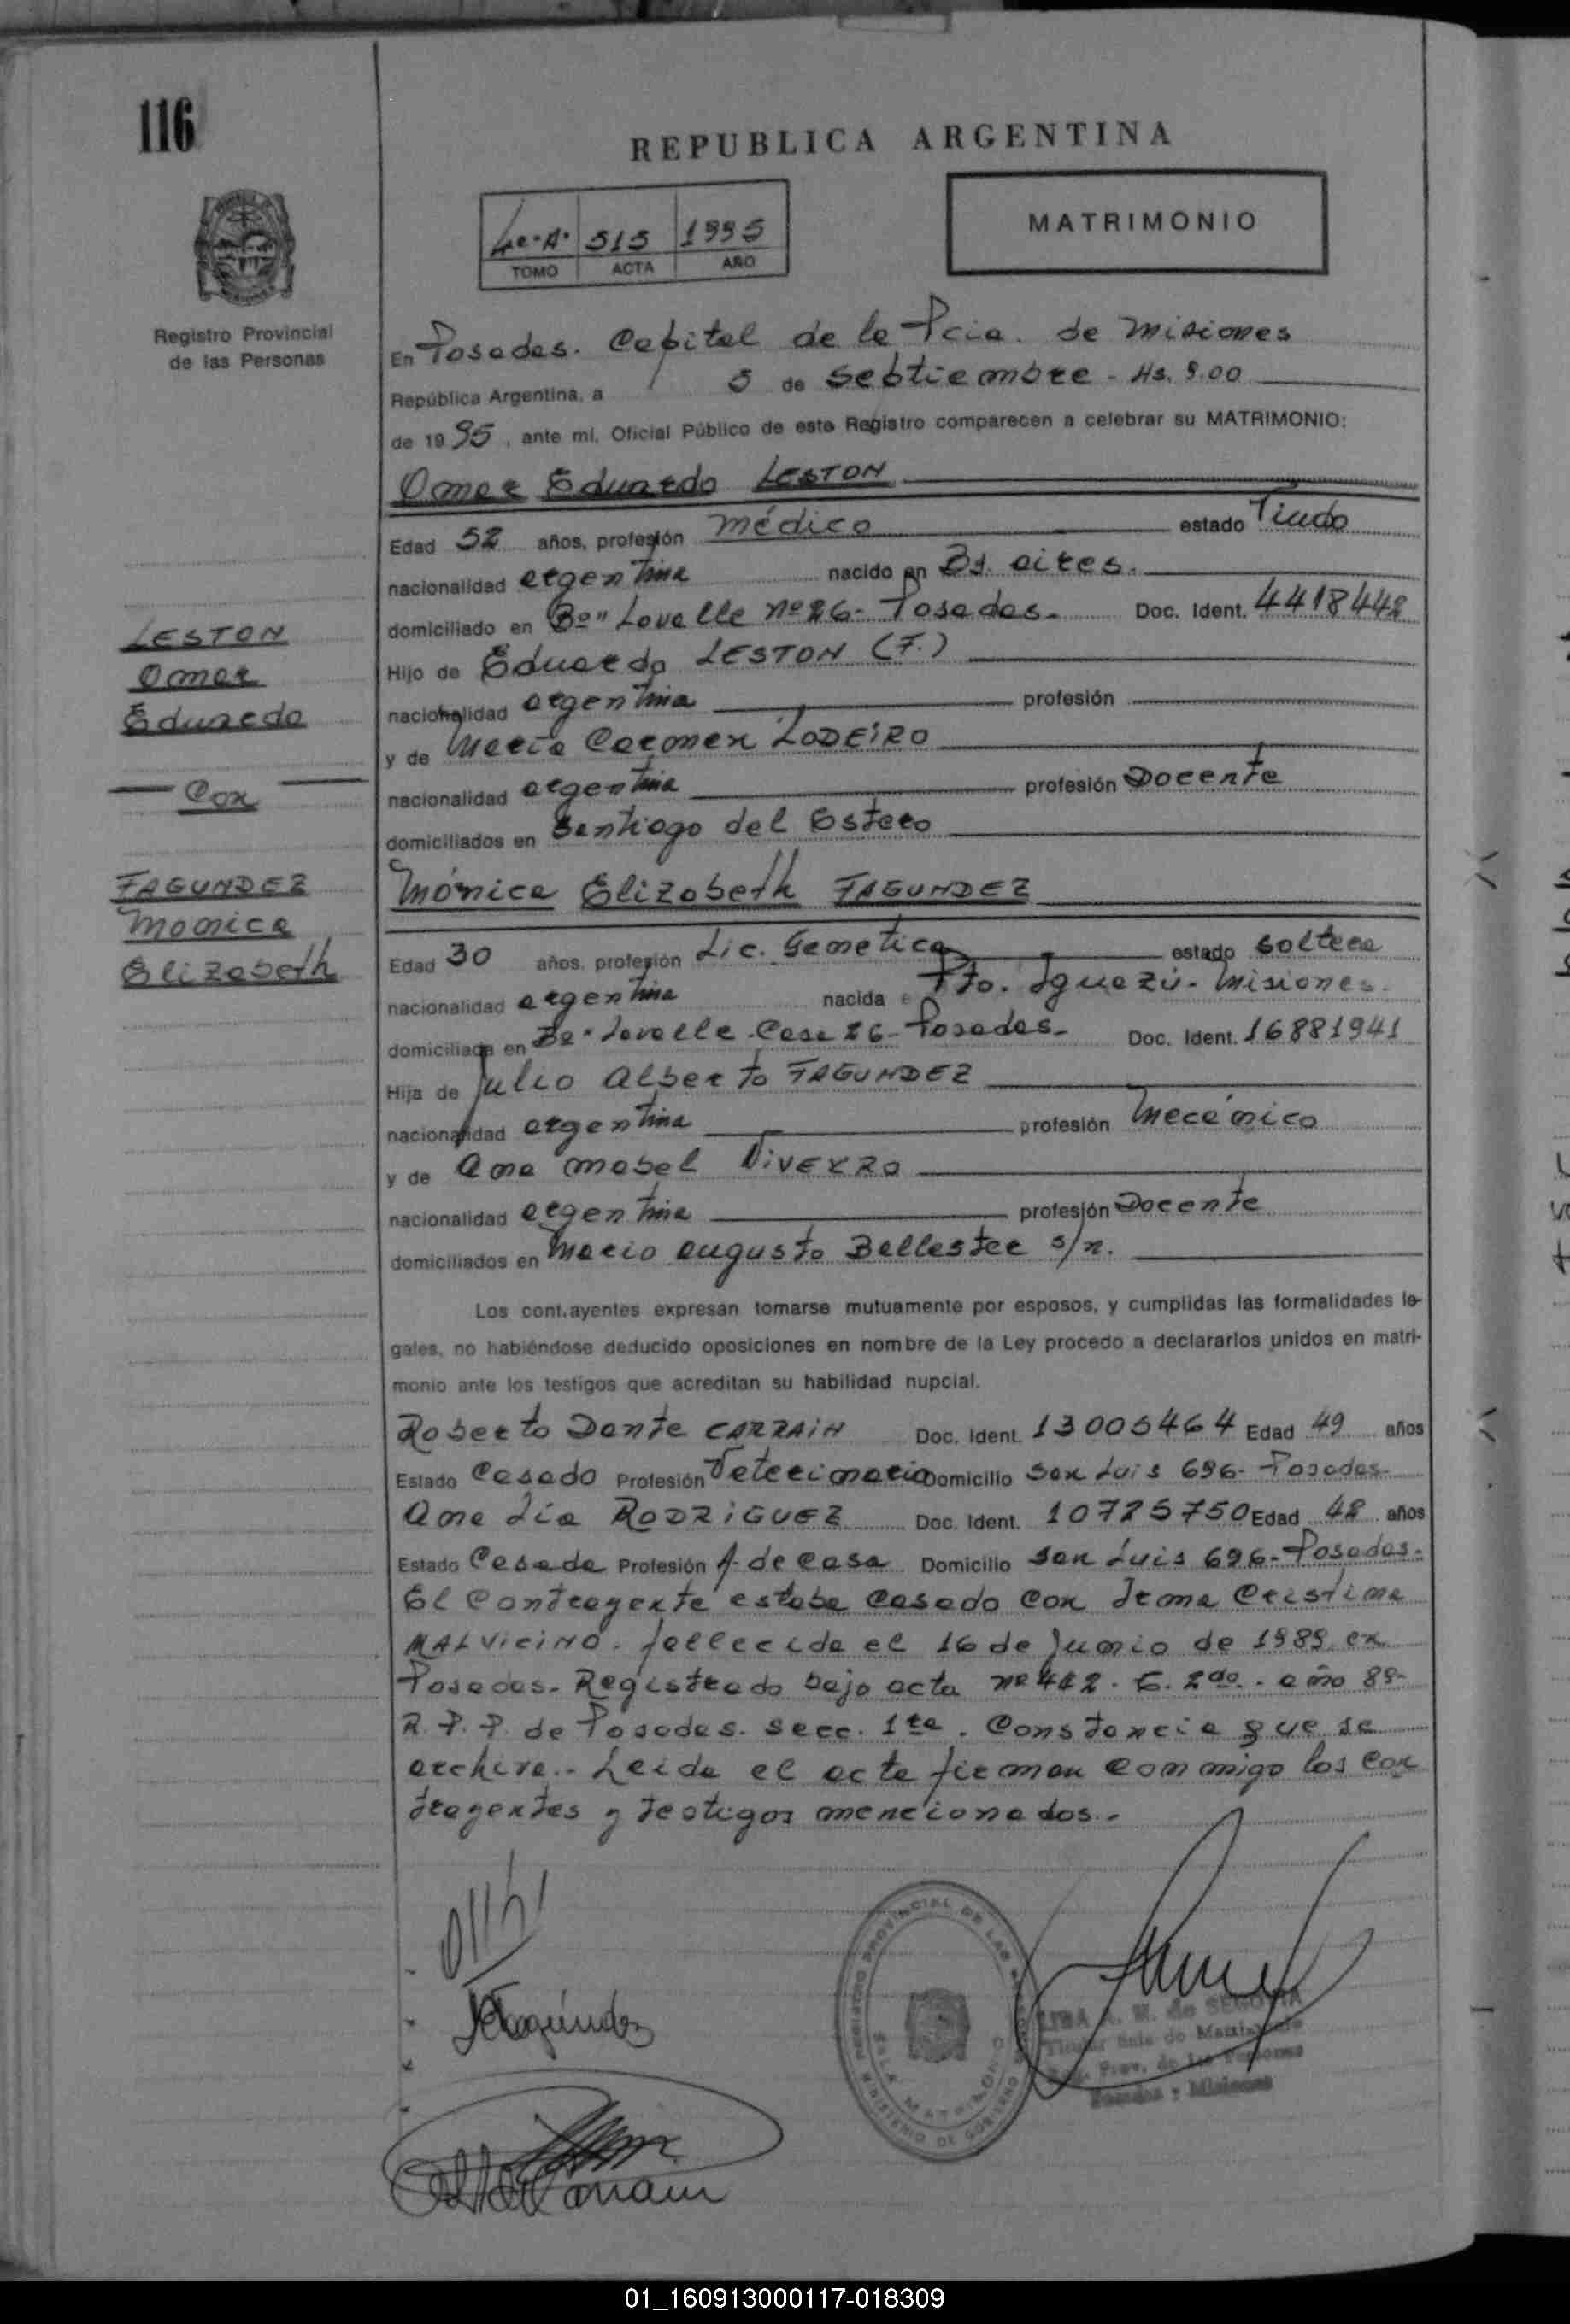 116
REPUBLICA ARGENTINA
4º-A. 515 1995
TOMO ACTA AÑO
MATRIMONIO
Registro Provincial
de las Personas
En Posadas. Capital de la Pcia. de Misiones
República Argentina, a 5 de Septiembre - Hs. 9.00
de 1995, ante mí, Oficial Público de este Registro comparecen a celebrar su MATRIMONIO:
Omar Eduardo LESTON
Edad 52 años, profesión Médico estado Viudo
nacionalidad argentina nacido en Bs. aires.
domiciliado en Bº" Lavalle nº 26- Posadas- Doc. Ident. 4418442
Hijo de Eduardo LESTON (F.)
nacionalidad argentina profesión
y de María Carmen LODEIRO
nacionalidad argentina profesión Docente
domiciliados en Santiago del Estero
LESTON
Omar
Eduardo
Con
FAGUNDEZ
Monica
Elizabeth
Mónica Elizabeth FAGUNDEZ
Edad 30 años, profesión Lic. Genetica estado soltera
nacionalidad argentina nacida e Pto. Iguazú- Misiones.
domiciliada en Bº" Lavalle - Casa 26- Posadas- Doc. Ident. 16881941
Hija de Julio Alberto FAGUNDEZ
nacionalidad argentina profesión Mecánico
y de Ana Mabel VIVEYRO
nacionalidad argentina profesión Docente
domiciliados en Mario augusto Ballester s/n.
Los cont.ayentes expresan tomarse mutuamente por esposos, y cumplidas las formalidades le-
gales, no habiéndose deducido oposiciones en nombre de la Ley procedo a declararlos unidos en matri-
monio ante los testigos que acreditan su habilidad nupcial.
Roberto Dante CARRAIN Doc. Ident. 13005464 Edad 49 años
Estado Casado Profesión Veterinario Domicilio San Luis 696- Posadas-
Ana Lía RODRIGUEZ Doc. Ident. 10725750 Edad 42 años
Estado Casada Profesión A- de casa Domicilio San Luis 696- Posadas-
El Contrayente estaba casado con Irma Cristina
MALVICINO. fallecida el 16 de Junio de 1989 en
Posadas- Registrado bajo acta nº 442. T. 2do. - año 89-
R. P. P. de Posadas. Secc. 1ra. Constancia que se
archiva.- Leída el acta firman conmigo los con
trayentes y testigos mencionados.-
REGISTRO PROVINCIAL DE LAS
SALA MATRIMONIO
MINISTERIO DE GOBIERNO
A. M. de SEGOVIA
Titular Sala de Matrimonio
Reg. Prov. de las Personas
Posadas - Misiones
01_160913000117-018309